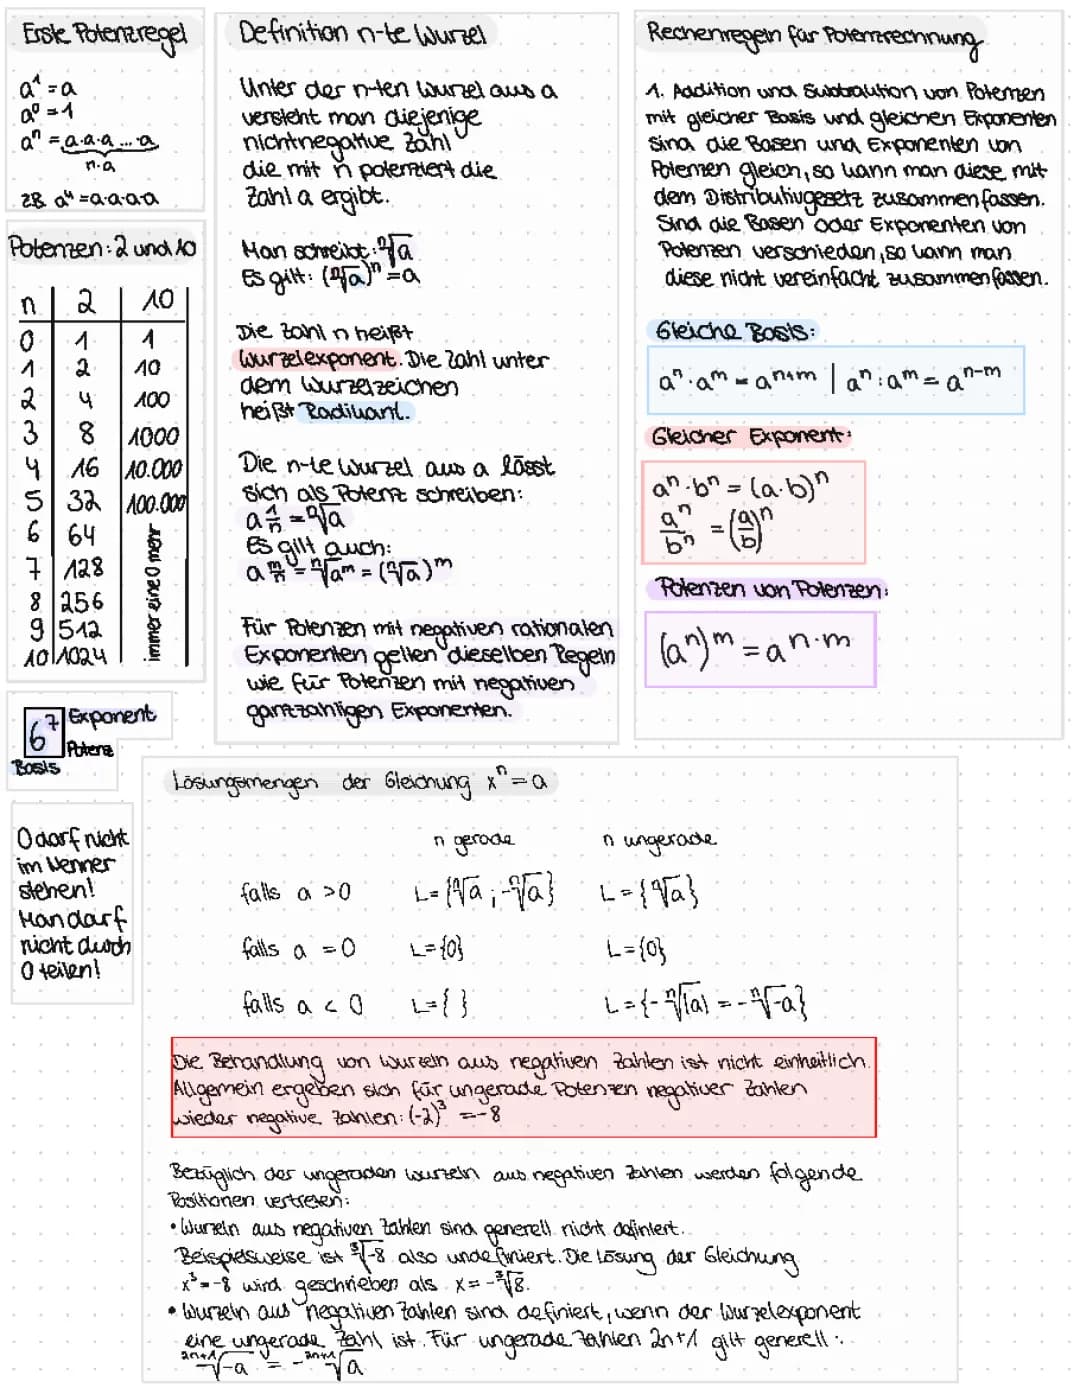 Erste Potenzregel
a¹ = a
a⁰ = 1
aⁿ = a·a·a ... a
n·a
z.B. a⁴ = a·a·a·a
Potenzen: 2 und 10
n 2 10
0 1 1
1 2 10
2 4 100
3 8 1000
4 16 10.000
5 32 100.000
6 64
7 128
8 256
9 512
10 1024
immer eine 0 mehr
6⁷ Exponent
Potenz
Basis
0 darf nicht
im Nenner
stehen!
Man darf
nicht durch
0 teilen!
Definition n-te Wurzel
Unter der n-ten Wurzel aus a
versteht man diejenige
nichtnegative Zahl
die mit n potenziert die
Zahl a ergibt.
Man schreibt: ⁿ√a
Es gilt: (ⁿ√a)ⁿ = a
Die Zahl n heißt
Wurzelexponent. Die Zahl unter
dem Wurzelzeichen
heißt Radikant.
Die n-te Wurzel aus a lässt
sich als Potenz schreiben:
a^(1/n) = ⁿ√a
Es gilt auch:
a^(m/n) = ⁿ√aᵐ = (ⁿ√a)ᵐ
Für Potenzen mit negativen rationalen
Exponenten gelten dieselben Regeln
wie für Potenzen mit negativen
ganzzahligen Exponenten.
Rechenregeln für Potenzrechnung
1. Addition und Subtraktion von Potenzen
mit gleicher Basis und gleichen Exponenten
Sind die Basen und Exponenten von
Potenzen gleich, so kann man diese mit
dem Distributivgesetz zusammenfassen.
Sind die Basen oder Exponenten von
Potenzen verschieden, so kann man
diese nicht vereinfacht zusammenfassen.
Gleiche Basis:
aⁿ · aᵐ = aⁿ⁺ᵐ | aⁿ : aᵐ = aⁿ⁻ᵐ
Gleicher Exponent:
aⁿ · bⁿ = (a·b)ⁿ
aⁿ/bⁿ = (a/b)ⁿ
Potenzen von Potenzen:
(aⁿ)ᵐ = aⁿ·ᵐ
Lösungsmengen der Gleichung xⁿ = a
n gerade n ungerade
falls a > 0 L = {ⁿ√a ; -ⁿ√a} L = {ⁿ√a}
falls a = 0 L = {0} L = {0}
falls a < 0 L = { } L = {-ⁿ√|a| = -ⁿ√-a}
Die Behandlung von Wurzeln aus negativen Zahlen ist nicht einheitlich.
Allgemein ergeben sich für ungerade Potenzen negativer Zahlen
wieder negative Zahlen: (-2)³ = -8
Bezüglich der ungeraden Wurzeln aus negativen Zahlen werden folgende
Positionen vertreten:
• Wurzeln aus negativen Zahlen sind generell nicht definiert.
Beispielsweise ist ³√-8 also undefiniert. Die Lösung der Gleichung
x³ = -8 wird geschrieben als x = -³√8.
• Wurzeln aus negativen Zahlen sind definiert, wenn der Wurzelexponent
eine ungerade Zahl ist. Für ungerade Zahlen 2n+1 gilt generell:
²ⁿ⁺¹√-a = -²ⁿ⁺¹√a